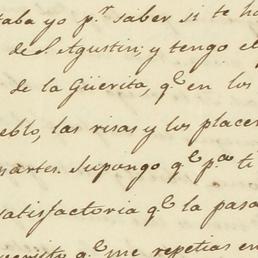 taba yo p.r saber si te ha
de S. Agustin; y tengo el
de la Güerita, q.e en los
eblo, las risas y los placer
partes. Supongo q.e p.a ti
satisfactoria q.e la pasa
q.e me repetias en